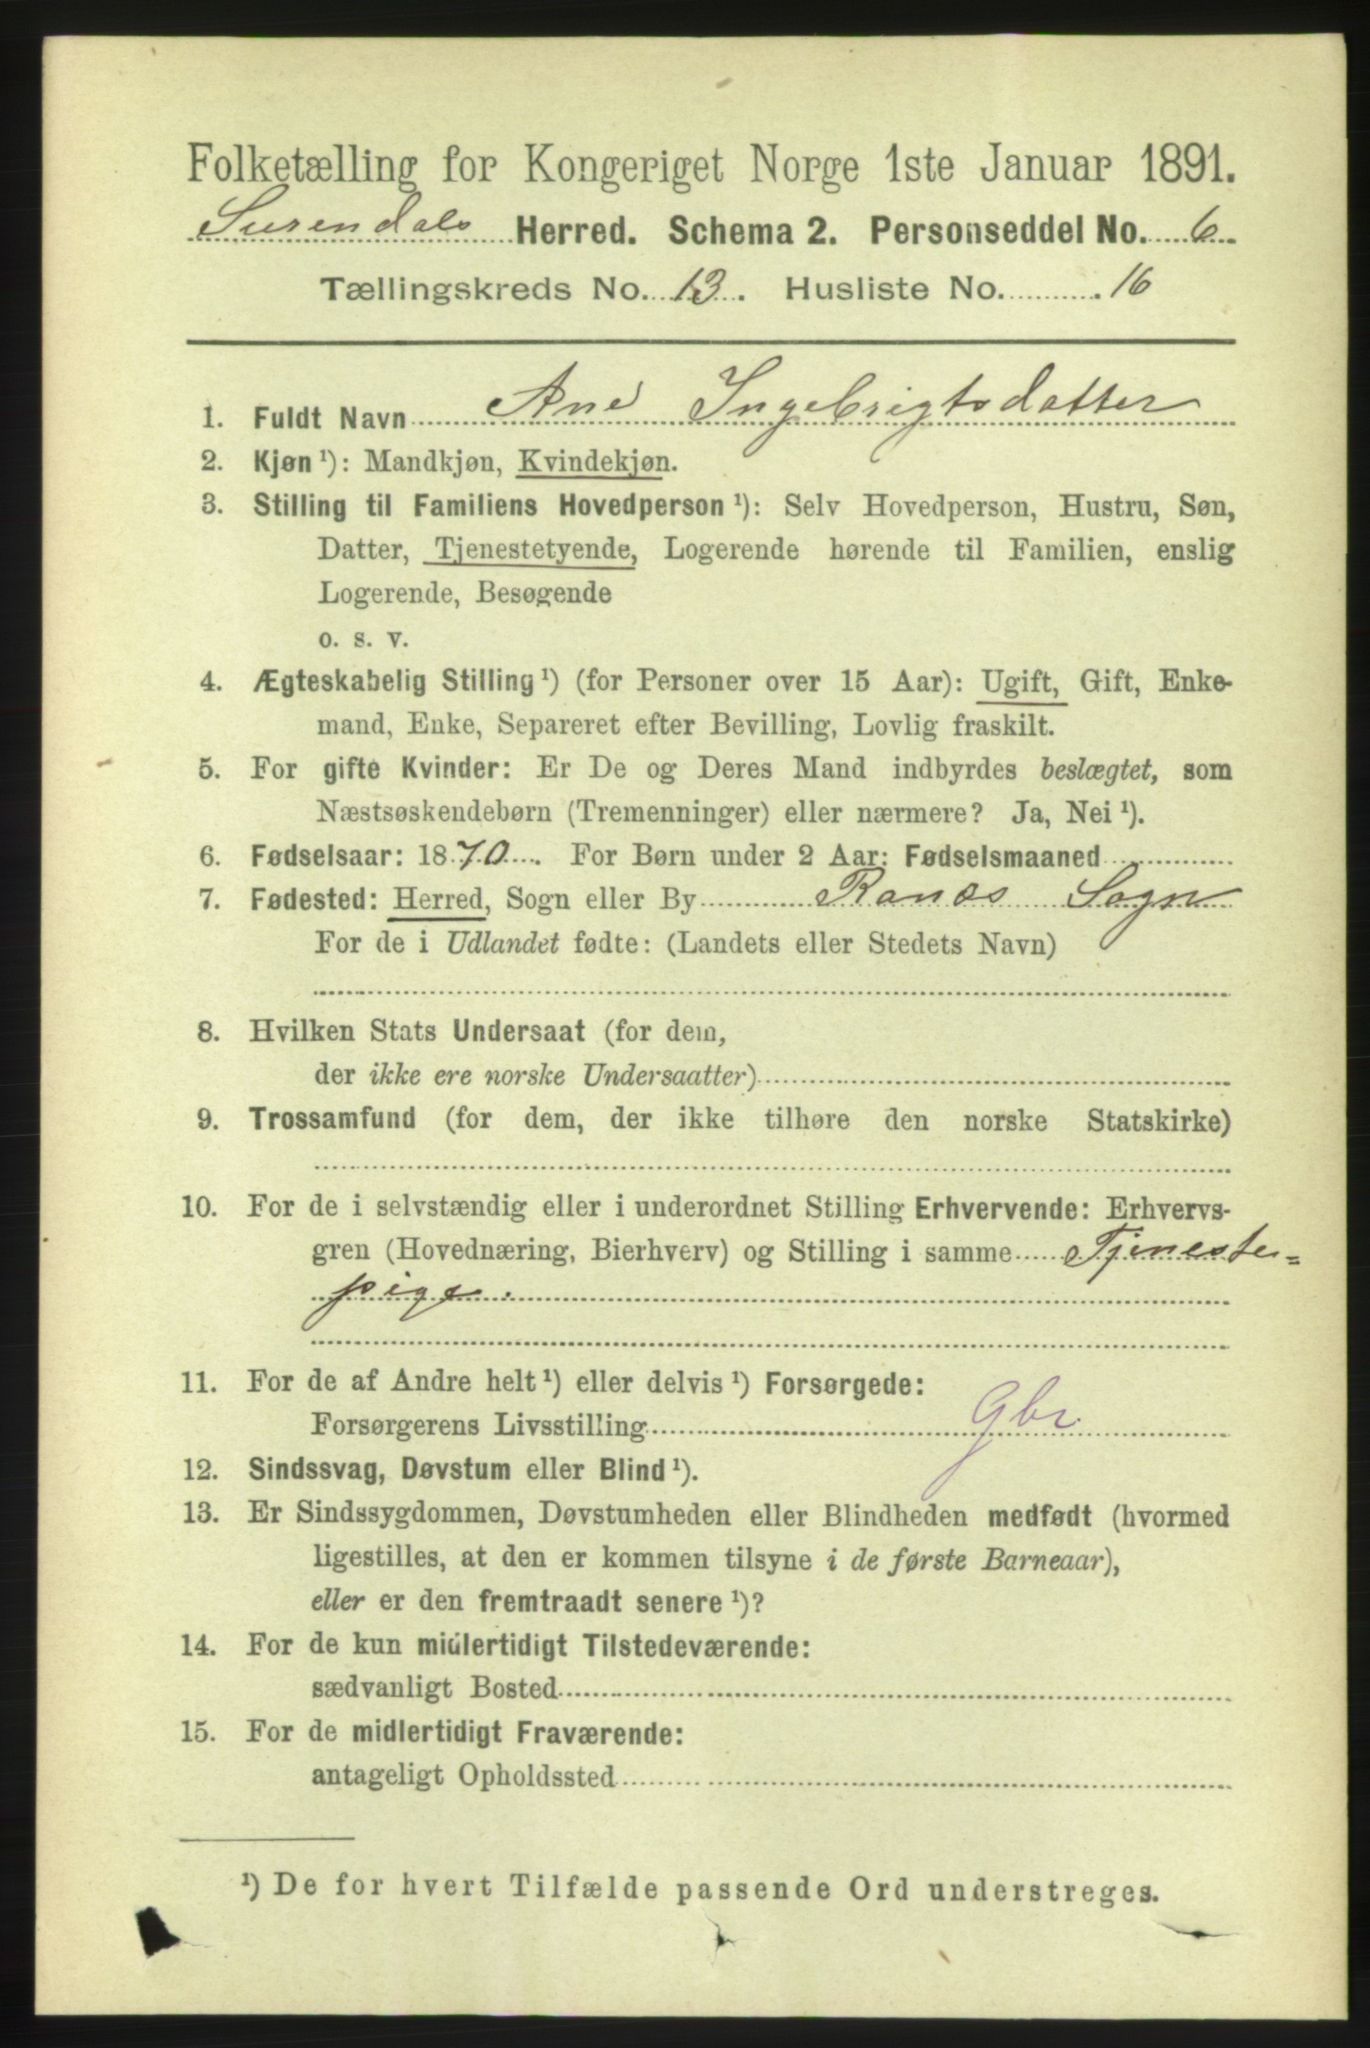 Folketælling for Kongeriget Norge 1ste Januar 1891.
Surendals Herred. Schema 2. Personseddel No. 6
Tællingskreds No. 13. Husliste No. 16
1. Fuldt Navn Ane Ingebrigtsdatter
2. Kjøn ¹): Mandkjøn, Kvindekjøn.
3. Stilling til Familiens Hovedperson ¹): Selv Hovedperson, Hustru, Søn,
Datter, Tjenestetyende, Logerende hørende til Familien, enslig
Logerende, Besøgende
o. s. v.
4. Ægteskabelig Stilling ¹) (for Personer over 15 Aar): Ugift, Gift, Enke-
mand, Enke, Separeret efter Bevilling, Lovlig fraskilt.
5. For gifte Kvinder: Er De og Deres Mand indbyrdes beslægtet, som
Næstsøskendebørn (Tremenninger) eller nærmere? Ja, Nei ¹).
6. Fødselsaar: 1870. For Børn under 2 Aar: Fødselsmaaned
7. Fødested: Herred, Sogn eller By Ranæs Sogn
For de i Udlandet fødte: (Landets eller Stedets Navn)
8. Hvilken Stats Undersaat (for dem,
der ikke ere norske Undersaatter)
9. Trossamfund (for dem, der ikke tilhøre den norske Statskirke)
10. For de i selvstændig eller i underordnet Stilling Erhvervende: Erhvervs-
gren (Hovednæring, Bierhverv) og Stilling i samme Tjeneste=
pige.
11. For de af Andre helt ¹) eller delvis ¹) Forsørgede:
Forsørgerens Livsstilling Gbr.
12. Sindssvag, Døvstum eller Blind ¹).
13. Er Sindssygdommen, Døvstumheden eller Blindheden medfødt (hvormed
ligestilles, at den er kommen tilsyne i de første Barneaar),
eller er den fremtraadt senere ¹)?
14. For de kun midlertidigt Tilstedeværende:
sædvanligt Bosted
15. For de midlertidigt Fraværende:
antageligt Opholdssted
¹) De for hvert Tilfælde passende Ord understreges.